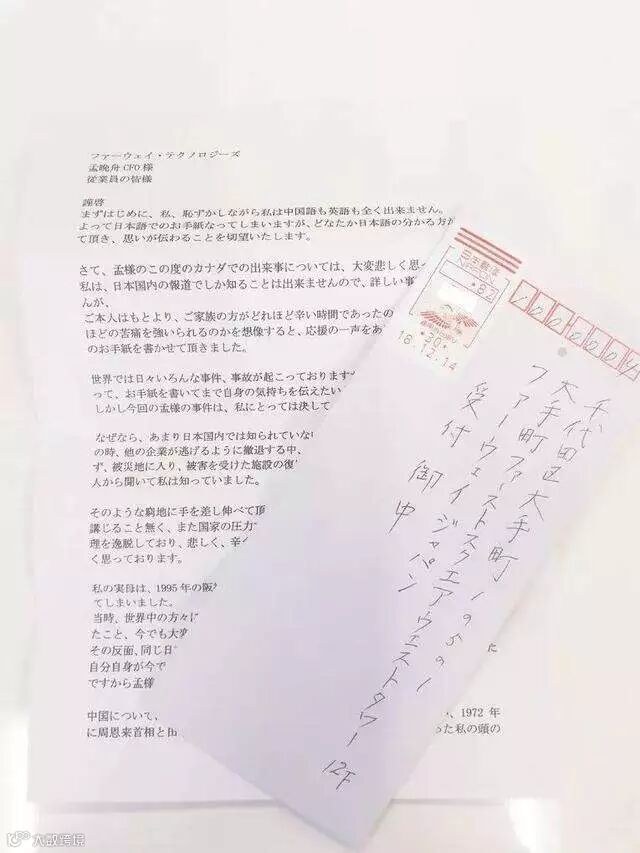 ファーウェイ・テクノロジーズ
孟晩舟 CFO 様
従業員の皆様
謹啓
まずはじめに、私、恥ずかしながら私は中国語も英語も全く出来ません。
よって日本語でのお手紙なってしまいますが、どなたか日本語の分かる方が
て頂き、思いが伝わることを切望いたします。
さて、孟様のこの度のカナダでの出来事については、大変悲しく思っ
私は、日本国内の報道でしか知ることは出来ませんので、詳しい事
んが、
ご本人はもとより、ご家族の方がどれほど辛い時間であったの
ほどの苦痛を強いられるのかを想像すると、応援の一声をあ
のお手紙を書かせて頂きました。
世界では日々いろんな事件、事故が起こっております
って、お手紙を書いてまで自身の気持ちを伝えたい
しかし今回の孟様の事件は、私にとっては決して
なぜなら、あまり日本国内では知られていない
の時、他の企業が逃げるように撤退する中、
ず、被災地に入り、被害を受けた施設の復
人から聞いて私は知っていました。
そのような窮地に手を差し伸べて頂
講じること無く、また国家の圧力
理を逸脱しており、悲しく、辛
く思っております。
私の実母は、1995 年の阪
てしまいました。
当時、世界中の方々に
たこと、今でも大
その反面、同じ日
自分自身が今で
ですから孟様
中国について、
、1972 年
に周恩来首相と田
った私の頭の
日本郵便
82
18.12.14
千代田区大手町1-5-1
大手町ファーストスクエアウェストタワー12F
ファーウェイジャパン
受付 御中
大数跨境